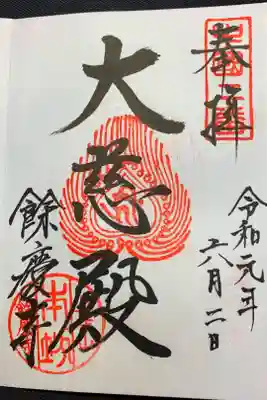 奉拝
令和元年
六月二日
大慈殿
餘慶寺